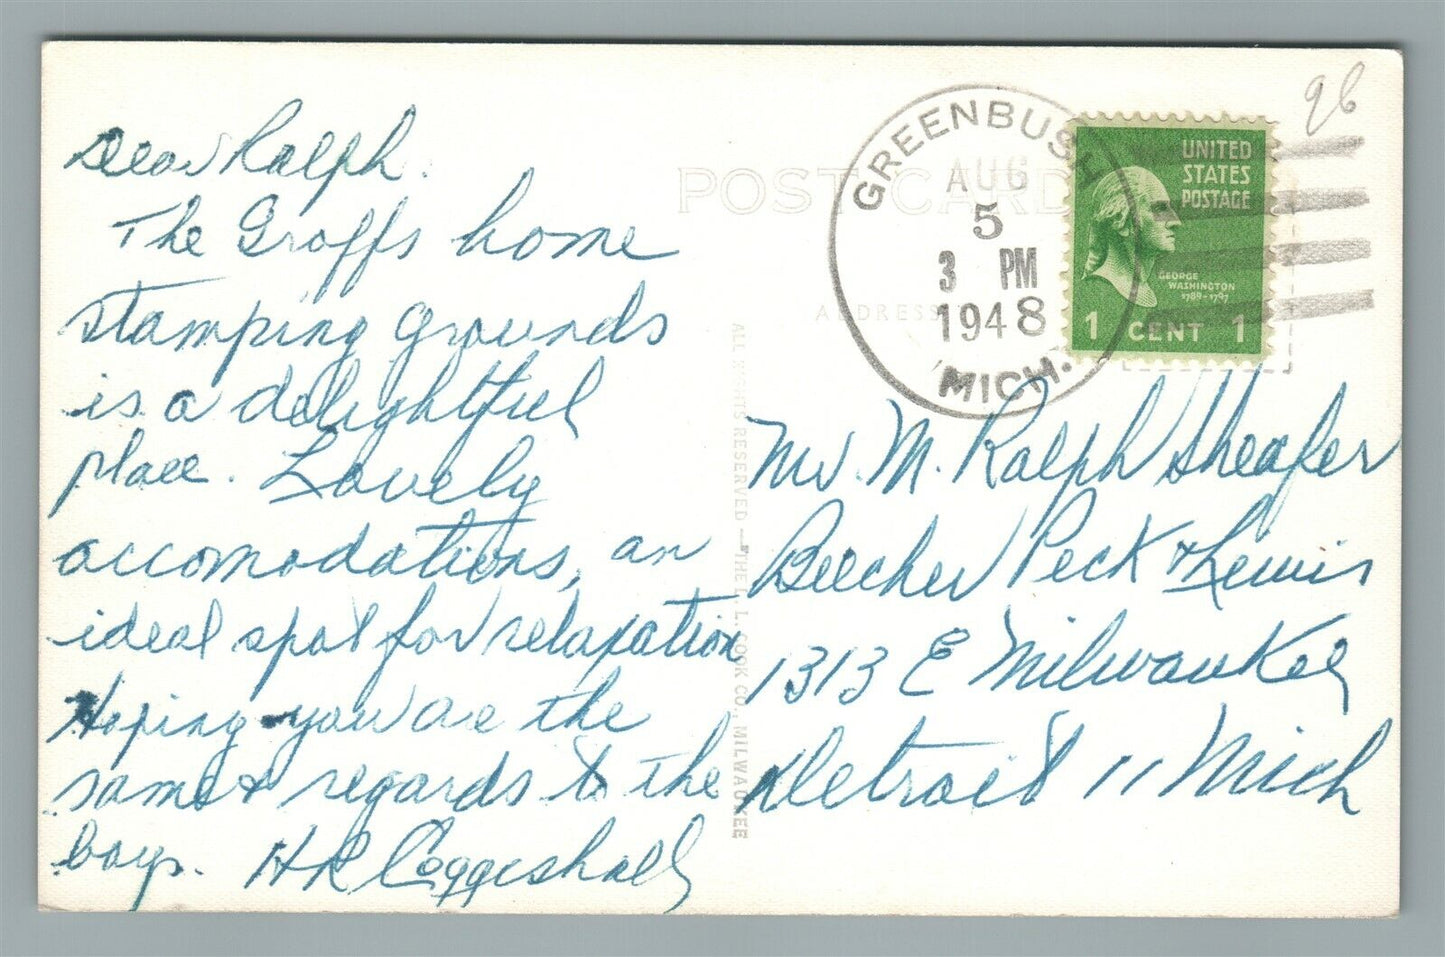 Dear Ralph.
The Groffs home
stamping grounds
is a delightful
place. Lovely
accomodations, an
ideal spot for relaxation
Hoping you are the
same & regards to the
boys. H R Coggeshall
POST CARD
ADDRESS
ALL RIGHTS RESERVED — THE L. L. COOK CO., MILWAUKEE
GREENBUSH
AUG
5
3 PM
1948
MICH.
UNITED
STATES
POSTAGE
GEORGE
WASHINGTON
1789-1797
1 CENT 1
96
Mr. M. Ralph Sheafer
Beecher Peck & Lewis
1313 E Milwaukee
Detroit 11 Mich